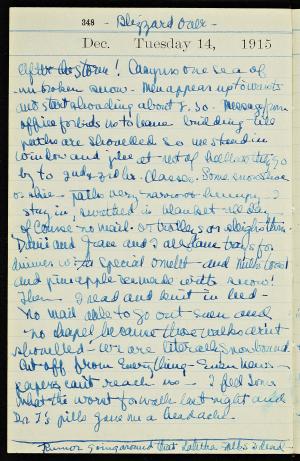 348 - Blizzard Over -
Dec. Tuesday 14, 1915
After the Storm! Campus one sea of
unbroken snow. Men appear up towards
and start shoveling about 8.30. Message from
office forbids us to leave building till
paths are shoveled so we stand in
window and at rest of as they go
by to 2nd & 3rd hr. classes. Some snowshoe
or skie - paths very narrow -
stay in, swathed in blanket all day.
Of course no mail - or trolleys or sleighs thru.
and Grace and I all have trays for
dinner with a special omelet - and milk toast
and pineapple made with snow!
Then I read and knit in bed -
No mail able to go out even and
no chapel because those walks aren't
shovelled - We are literally snowbound.
Cut off from everything - Even news-
papers can't reach us - I feel some-
what the worst for walk last night and
Dr. T's pills gave me a headache.
Rumor going around that is dead